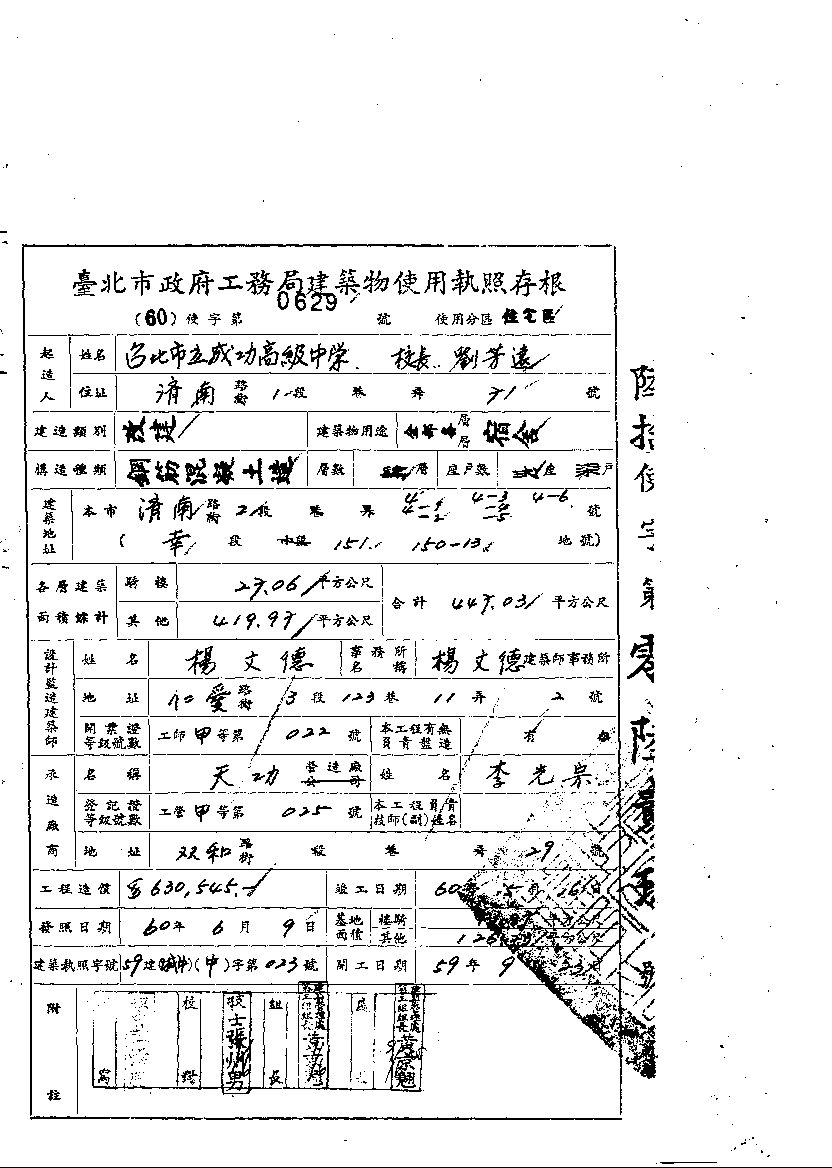 臺北市政府工務局建築物使用執照存根
(60)使字第 0629 號 使用分區 住宅區
起造人 姓名 台北市立成功高級中学 校長 劉芳遠
住址 済南 路街 1 段 巷 弄 71 號
建造類別 改建 建築物用途 層層 宿舍
構造種類 鋼筋混凝土造 層數 層 座戶數 座 戶
建築地址 本市 済南 路街 2段 巷 弄 4 4-1 4-2 4-3 4-5 4-6 號
( 幸 段 小段 151. 150-13 地號)
各層建築面積樓計 騎樓 27.06 平方公尺 合計 447.03 平方公尺
其他 419.97 平方公尺
設計監造建築師 姓名 楊文德 事務所名稱 楊文德建築師事務所
地址 仁愛 路街 3 段 123 巷 11 弄 2 號
開業證等級號數 工師甲等第 022 號 本工程有無負責監造 有
承造廠商 名稱 天功 營造廠公司 姓名 李光宗
登記證等級號數 工營甲等第 025 號 本工程負責技師(副)姓名
地址 双和 路街 段 巷 弄 29 號
工程造價 630,545.- 竣工日期 60年 5月 26日
發照日期 60年 6月 9日 基地面積 樓騎 平方公尺
其他 平方公尺
建築執照字號 59建(中)字第023號 開工日期 59年 9 23
附註
技士張炳男
組長
陸拾使字第零陸貳玖號